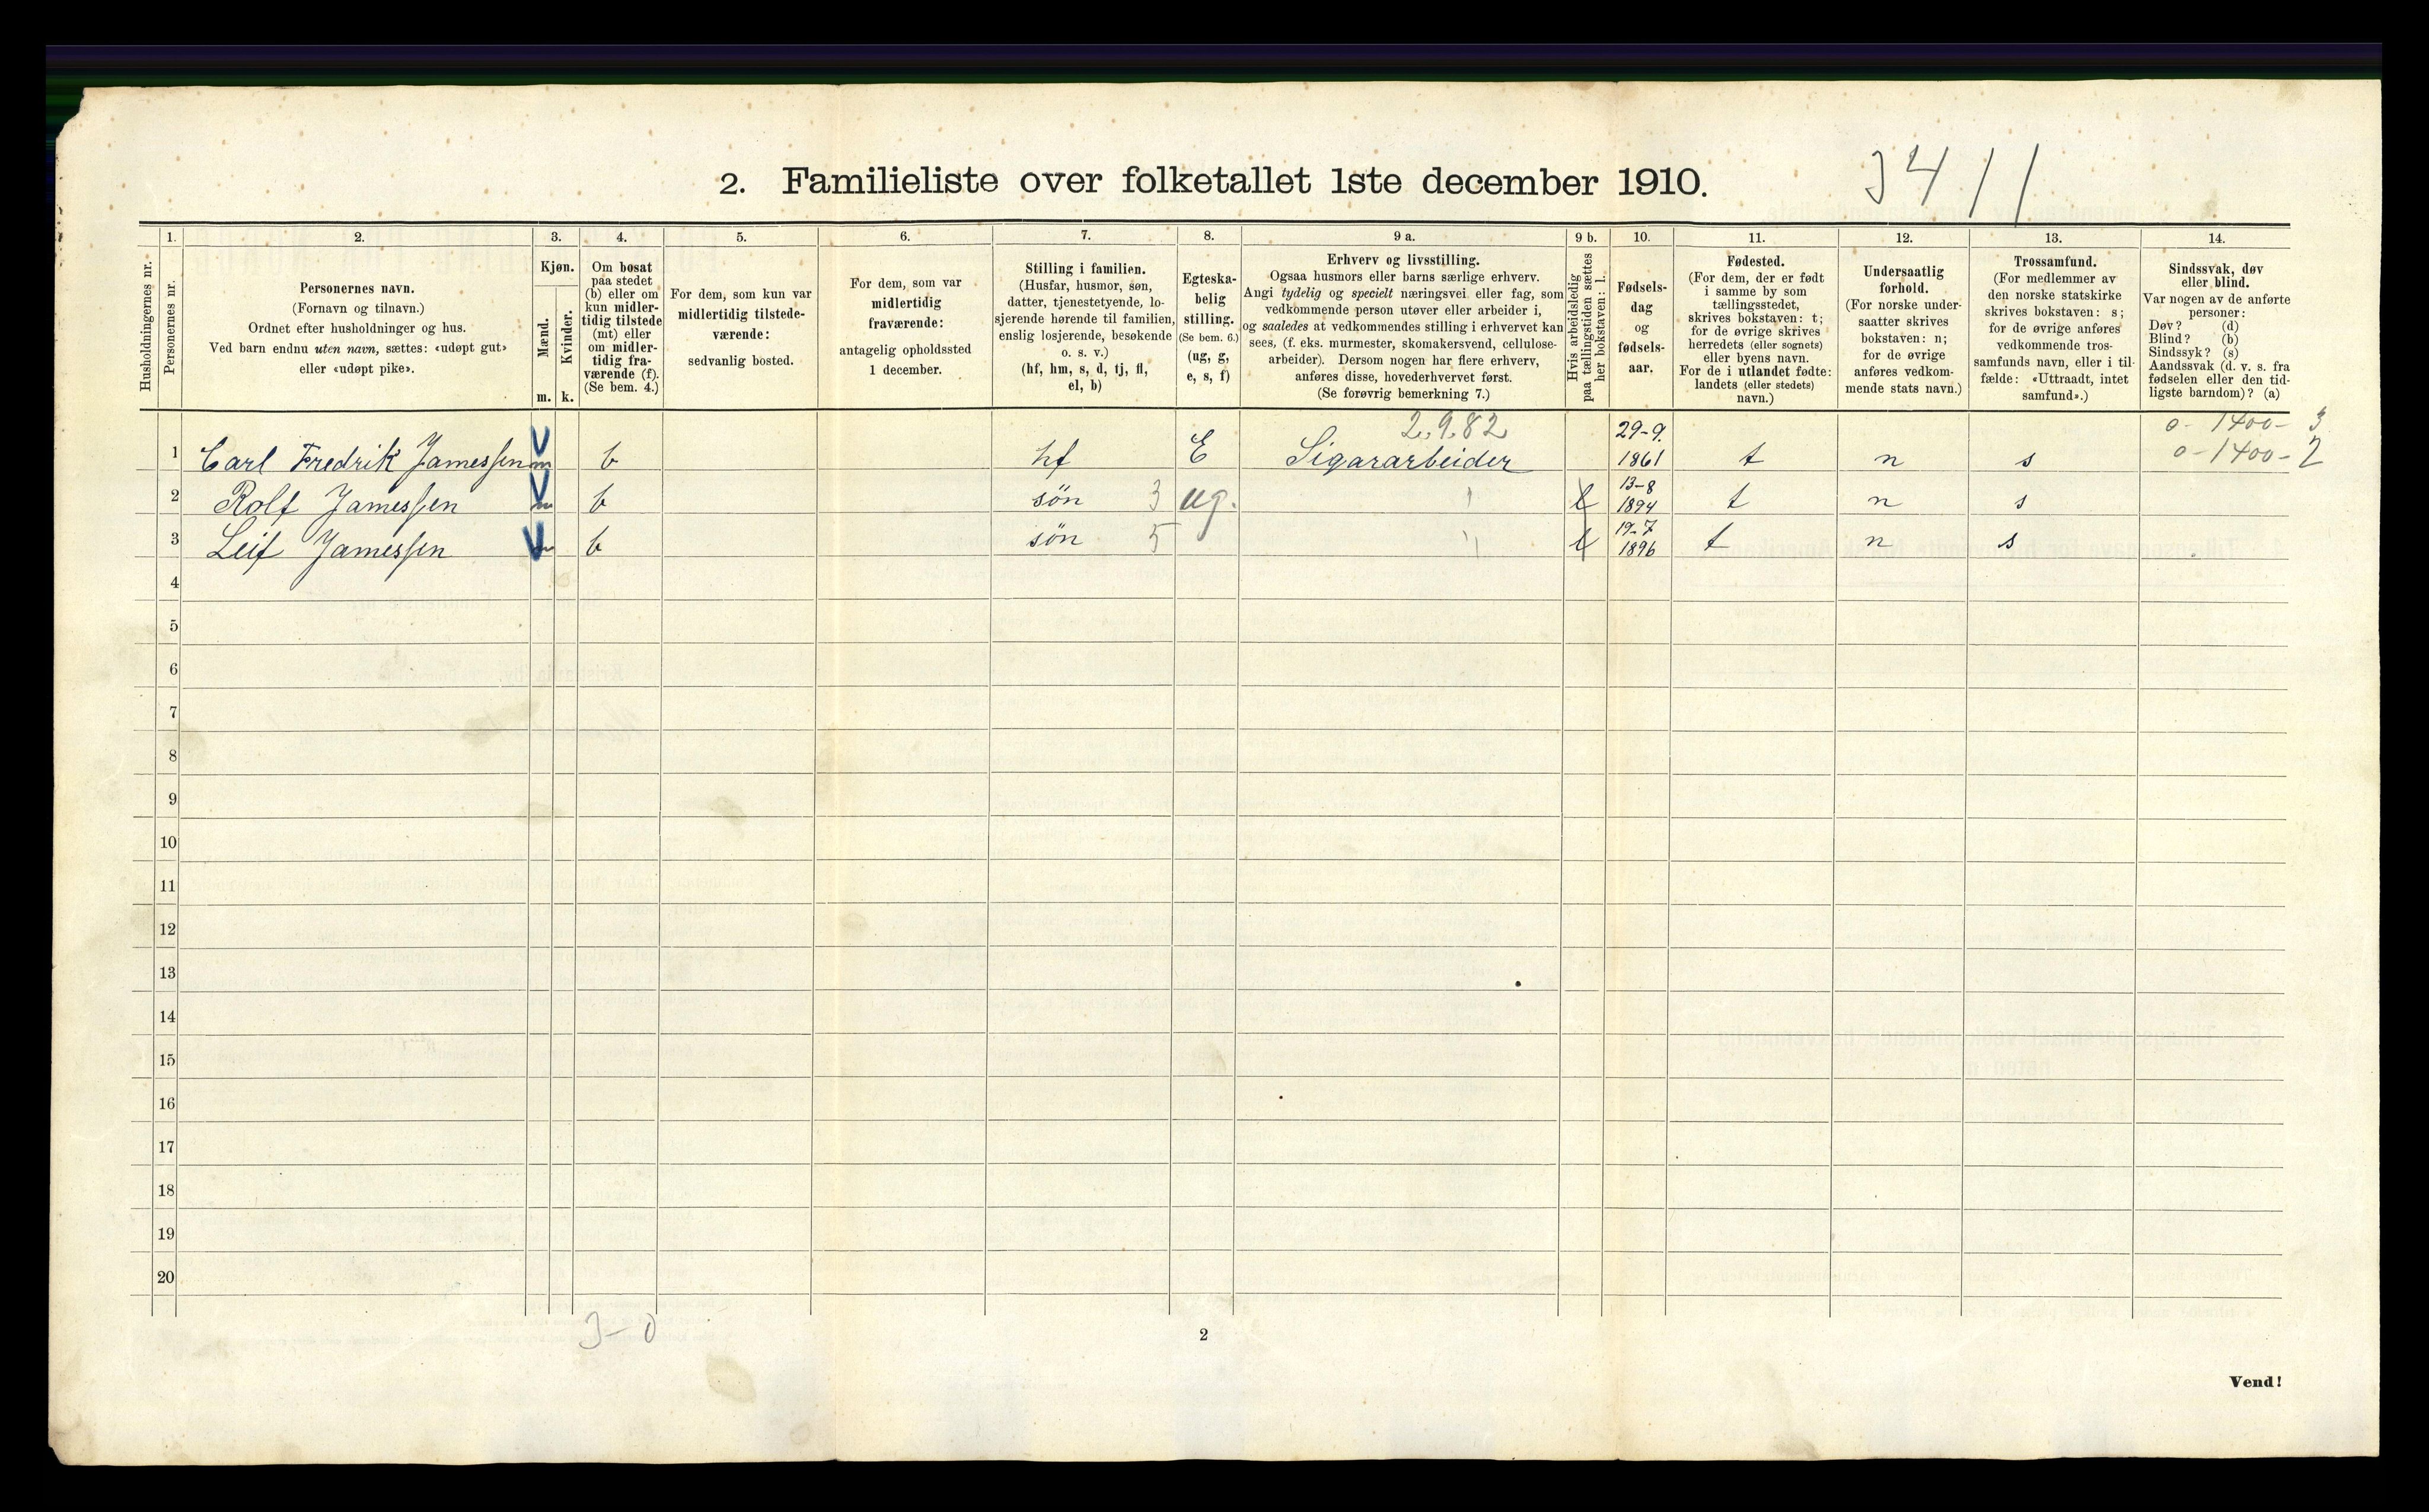 2. Familieliste over folketallet 1ste december 1910.
3411
1. 2. 3. 4. 5. 6. 7. 8. 9 a. 9 b. 10. 11. 12. 13. 14.
Husholdningernes nr.
Personernes nr.
Personernes navn.
(Fornavn og tilnavn.)
Ordnet efter husholdninger og hus.
Ved barn endnu uten navn, sættes: «udøpt gut»
eller «udøpt pike».
Kjøn.
Mænd.
Kvinder.
m. k.
Om bosat
paa stedet
(b) eller om
kun midler-
tidig tilstede
(mt) eller
om midler-
tidig fra-
værende (f).
(Se bem. 4.)
For dem, som kun var
midlertidig tilstede-
værende:
sedvanlig bosted.
For dem, som var
midlertidig
fraværende:
antagelig opholdssted
1 december.
Stilling i familien.
(Husfar, husmor, søn,
datter, tjenestetyende, lo-
sjerende hørende til familien,
enslig losjerende, besøkende
o. s. v.)
(hf, hm, s, d, tj, fl,
el, b)
Egteska-
belig
stilling.
(Se bem. 6.)
(ug, g,
e, s, f)
Erhverv og livsstilling.
Ogsaa husmors eller barns særlige erhverv.
Angi tydelig og specielt næringsvei eller fag, som
vedkommende person utøver eller arbeider i,
og saaledes at vedkommendes stilling i erhvervet kan
sees, (f. eks. murmester, skomakersvend, cellulose-
arbeider). Dersom nogen har flere erhverv,
anføres disse, hovederhvervet først.
(Se forøvrig bemerkning 7.)
Hvis arbeidsledig
paa tællingstiden sættes
her bokstaven: l.
Fødsels-
dag
og
fødsels-
aar.
Fødested.
(For dem, der er født
i samme by som
tællingsstedet,
skrives bokstaven: t;
for de øvrige skrives
herredets (eller sognets)
eller byens navn.
For de i utlandet fødte:
landets (eller stedets)
navn.)
Undersaatlig
forhold.
(For norske under-
saatter skrives
bokstaven: n;
for de øvrige
anføres vedkom-
mende stats navn.)
Trossamfund.
(For medlemmer av
den norske statskirke
skrives bokstaven: s;
for de øvrige anføres
vedkommende tros-
samfunds navn, eller i til-
fælde: «Uttraadt, intet
samfund».)
Sindssvak, døv
eller blind.
Var nogen av de anførte
personer:
Døv? (d)
Blind? (b)
Sindssyk? (s)
Aandssvak (d. v. s. fra
fødselen eller den tid-
ligste barndom)? (a)
2.9.82 29-9. 0-1400-3
1 Carl Fredrik Jamessen m b hf E Sigararbeider 1861 t n s 0-1400-2
2 Rolf Jamessen m b søn 3 ug. l 13-8 1894 t n s
3 Leif Jamessen m b søn 5 l 19-7 1896 t n s
4
5
6
7
8
9
10
11
12
13
14
15
16
17
18
19
20
3-0
2
Vend!